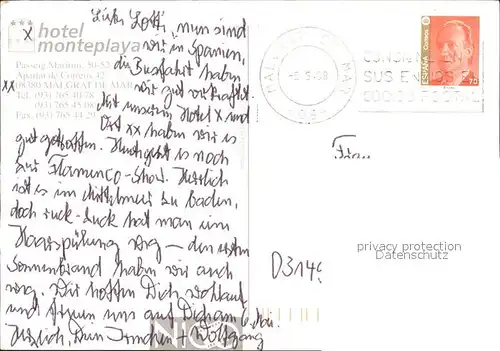 Liebe Lotti, nun sind
x hotel
monteplaya
wir in Spanien,
Passeig Marítim, 50-52
Apartat de Correus 42
xx 08380 MALGRAT DE MAR
Tel. (93) 765 40 78
(93) 765 45 06
Fax. (93) 765 44 29
die Busfahrt haben
wir gut verkraftet.
Mit unserem Hotel x und
Ort xx haben wir es
gut getroffen. Heute gibt es noch
eine Flamenco-Show. Herrlich
ist es im Mittelmeer zu baden,
doch ruck-zuck hat man eine
Haarspülung weg – den ersten
Sonnenbrand haben wir auch
weg. Wir hoffen Dich wohlauf
und freuen uns auf Dich am 6. Mai.
Herzlich, Dein + Wolfgang
MALGRAT DE MAR
-5-98
CONSIGNE EN
SUS ENVIOS EL
CODIGO POSTAL
ESPAÑA
Correos
Frau
privacy protection
Datenschutz
D 3149
NICO